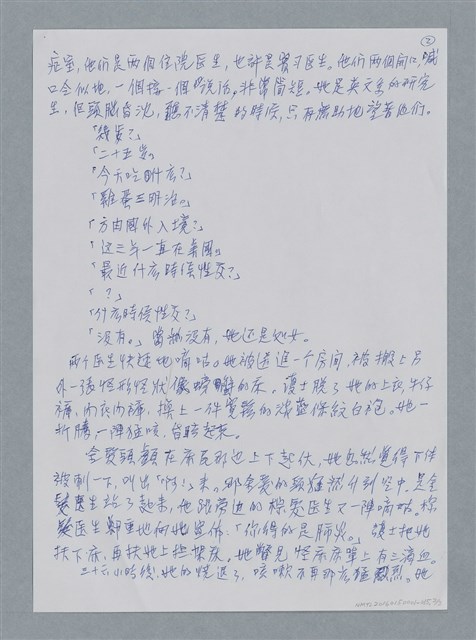 ②
症室，他们是两個住院医生，也許是實习医生。他们两個開口，喊
口令似地，一個接一個的说话。非常簡短。她是英文系的研究
生，但頭腦昏沈，聽不清楚的時候，只有無助地望著他们。
「幾岁？」
「二十五岁。
「今天吃什麽？」
「雞蛋三明治。」
「方由國外入境？」
「这三年一直在美國。」
「最近什麽時候性交？」
「？」
「什麽時侯性交？」
「没有。」當然没有，她还是处女。
两个医生快速地嘀咕。她被送進一个房间，被搬上另
外一張怪形怪狀像螃蟹的床。護士脱了她的上衣、牛仔
褲，内衣内褲，換上一件寬鬆的淺藍條紋白袍。她一
折騰，一陣猛咳，昏眩起來。
金髮頭顱在床尾那边上下起伏，她忽然覺得下体
被刺一下，叫出「啊！」來。那金髮的頭顱 升到空中，是金
髮医生站了起來，他跟旁边的棕髮医生又一陣嘀咕。棕
髮医生鄭重地向她宣佈：「你得的是肺炎。」護士把她
扶下床，再扶她上輪椅後，她瞥見怪床床單上有三滴血。
三十六小時後，她的燒退了，咳嗽不再那麽猛烈。她